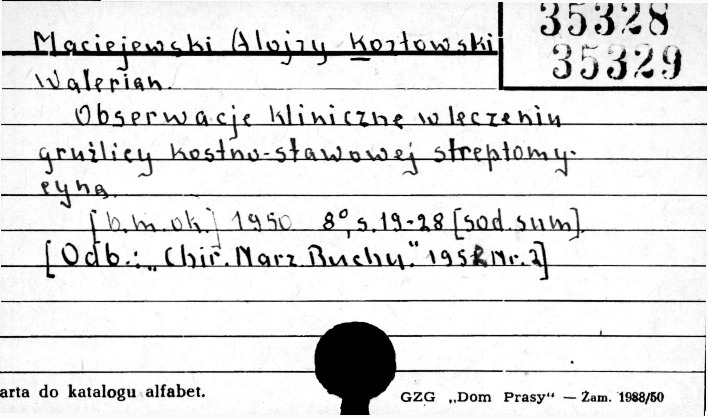 35328
35329
Maciejewski Alojzy Kozłowski
Walerian.
Obserwacje kliniczne w leczeniu
gruźlicy kostno-stawowej streptomy-
cyną.
[b.m.ok.] 1950 8°, s. 19-28 [sod. sum].
[Odb.: „Chir. Narz. Ruchu." 195 Nr. 2]
arta do katalogu alfabet.
GZG „Dom Prasy“ — Zam. 1988/50